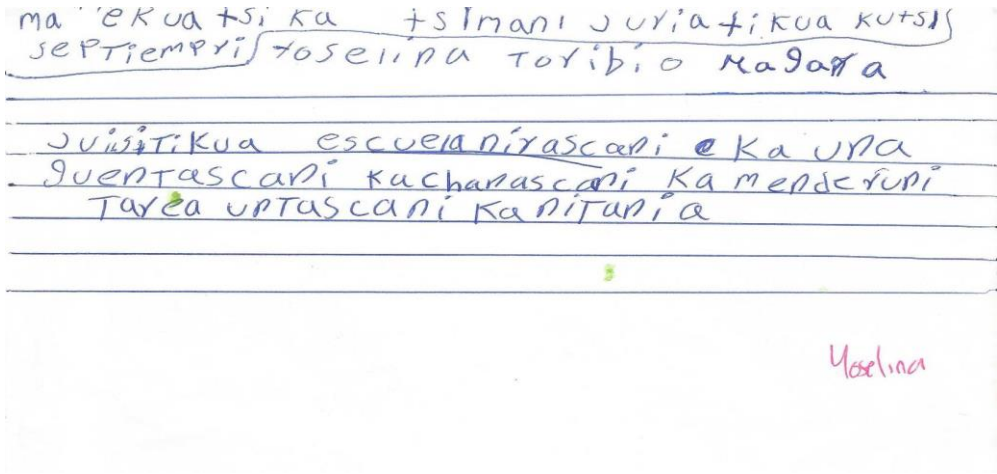 ma ekuatsi ka tsimani juriatikua kutsis
septiempri Yoselina Toribio Magaña
juisitikua escuelanirascani ka una
guentascani kachanascani ka menderuni
tarea untascani kanitania
Yoselina